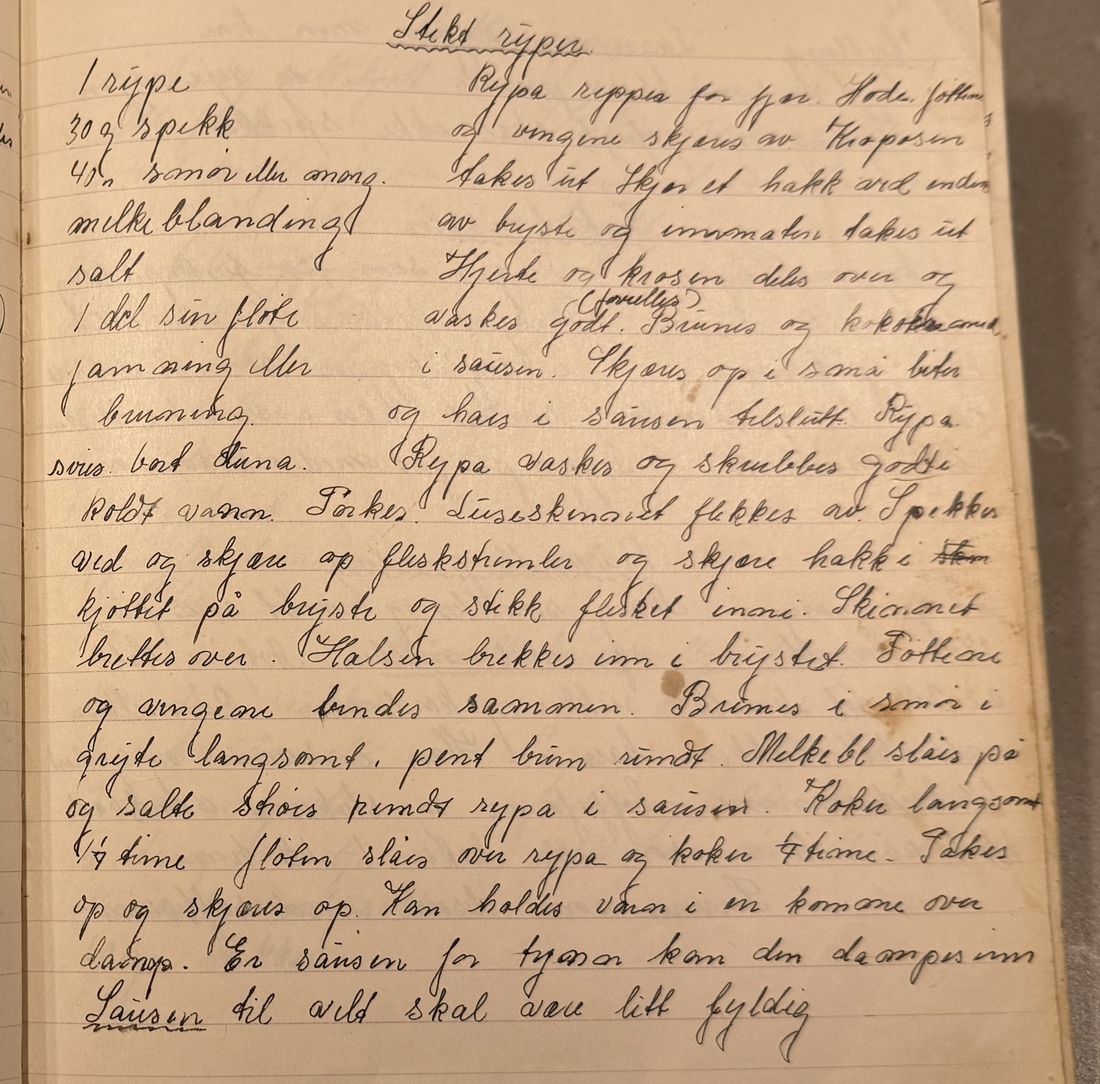 Stekt ryper.
1 rype Rypa reppes for fjær. Hode, føttene
30 g spekk og vingene skjæres av Kroposen
40 " smør eller marg. takes ut Skjær et hakk ved enden
melkeblanding av bryste og innmaten takes ut
salt Hjerte og krosen deles over og
(forvelles)
1 del sur fløte vaskes godt. Brunes og kokes
jamning eller i sausen. Skjæres op i små biter
bruning. og haes i sausen tilslutt. Rypa
svies bort duna. Rypa vaskes og skrubbes godt i
koldt vann. Tørkes. Luseskinnet flekkes av. Spekkes
ved og skjære op fleskstrimler og skjære hakk i
kjøttet på bryste og stikk flesket inni. Skinnet
brettes over. Halsen brekkes inn i brystet. Føttene
og vingene bindes sammen. Brunes i smør i
gryte langsomt, pent brun rundt. Melkebl slåes på
og salte strøes rundt rypa i sausen. Koker langsomt
time fløten slåes over rypa og koker time. Takes
op og skjæres op. Kan holdes varm i en komme over
damp. Er sausen for tynn kan den dampes inn
Sausen til vilt skal være litt fyldig